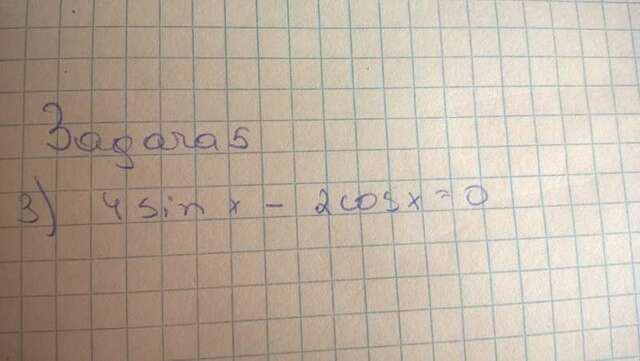 Задача 5
3) 4 sin x - 2 cos x = 0